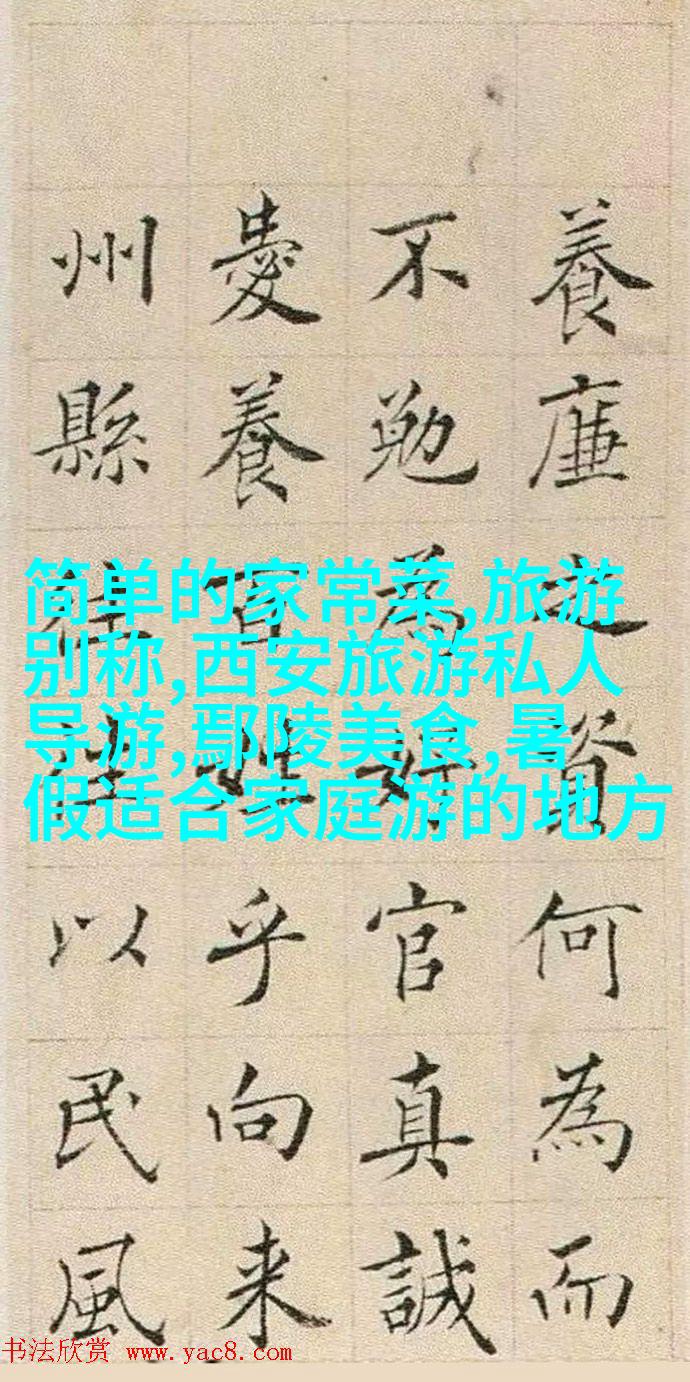 養廉之資何為而
不勉為好官真誠
愛養百姓乎向来
州縣往往以民風
简单的家常菜,旅游
别称,西安旅游私人
导游,鄢陵美食,暑
假适合家庭游的地方
书法欣赏 www.yac8.com